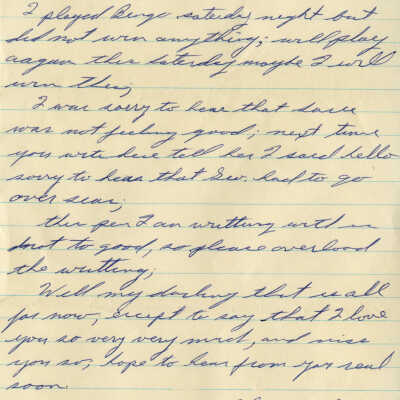 I played Bingo saterday night but
did not win anything; will play
aagan this saterday maybe I will
win then;
I was sorry to hear that
was not feeling good; next time
you write here tell her I said hello
sorry to hear that Geo. had to go
over seas;
this pen I am writting with is
not to good, so please overlood
the writting;
Well my darling that is all
for now, except to say that I love
you so very very much, and miss
you so; hope to hear from you real
soon